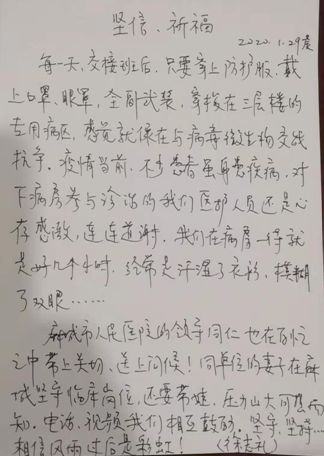 坚信、祈福
2020.1.29晨
每一天,交接班后,只要穿上防护服、戴
上口罩、眼罩,全副武装,穿梭在三层楼的
专用病区,感觉就像在与病毒微生物交战
抗争。疫情当前,不少患者虽身患疾病,对
下病房参与诊治的我们医护人员还是心
存感激,连连道谢。我们在病房一待就
是好几个小时,经常是汗湿了衣衫,模糊
了双眼……
麻城市人民医院的领导同仁也在百忙
之中带上关切、送上问候!同单位的妻子在麻
城坚守临床岗位,还要带娃,压力山大可想而
知。电话、视频我们相互鼓励。坚守,坚持…
相信风雨过后是彩虹!(徐志礼)